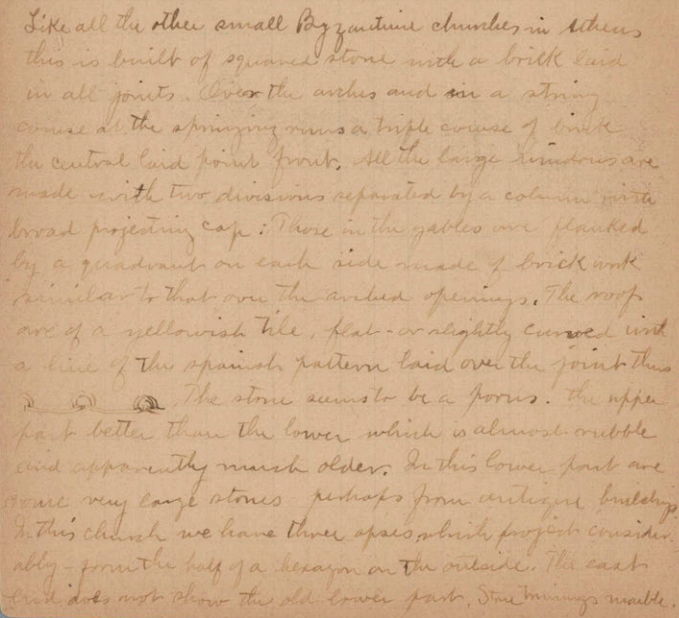 Like all the other small Byzantine churches in Athens
this is built of squared stone with a brick laid
in all joints. Over the arches and in a string
course at the springing runs a triple course of brick
the central laid point front. All the large windows are
made with two divisions separated by a column with
broad projecting cap: Those in the gables are flanked
by a quadrant on each side made of brick work
similar to that over the arched openings. The roofs
are of a yellowish tile, flat - or slightly curved with
a line of the spanish pattern laid over the joint thus
The stone seems to be a poros. The upper
part better than the lower which is almost rubble
and apparently much older. In this lower part are
some very large stones perhaps from antique buildings
In this church we have three apses which project consider-
ably - form the half of a hexagon on the outside. The east
end does not show the old lower part. Stone trimmings marble.